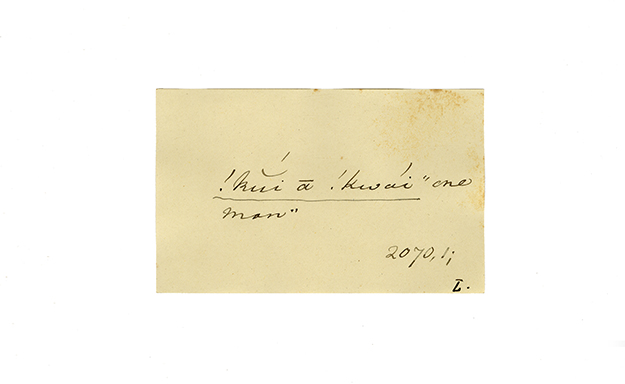 !kŭí ā !kwái "one
man"
2070, 1;
L.